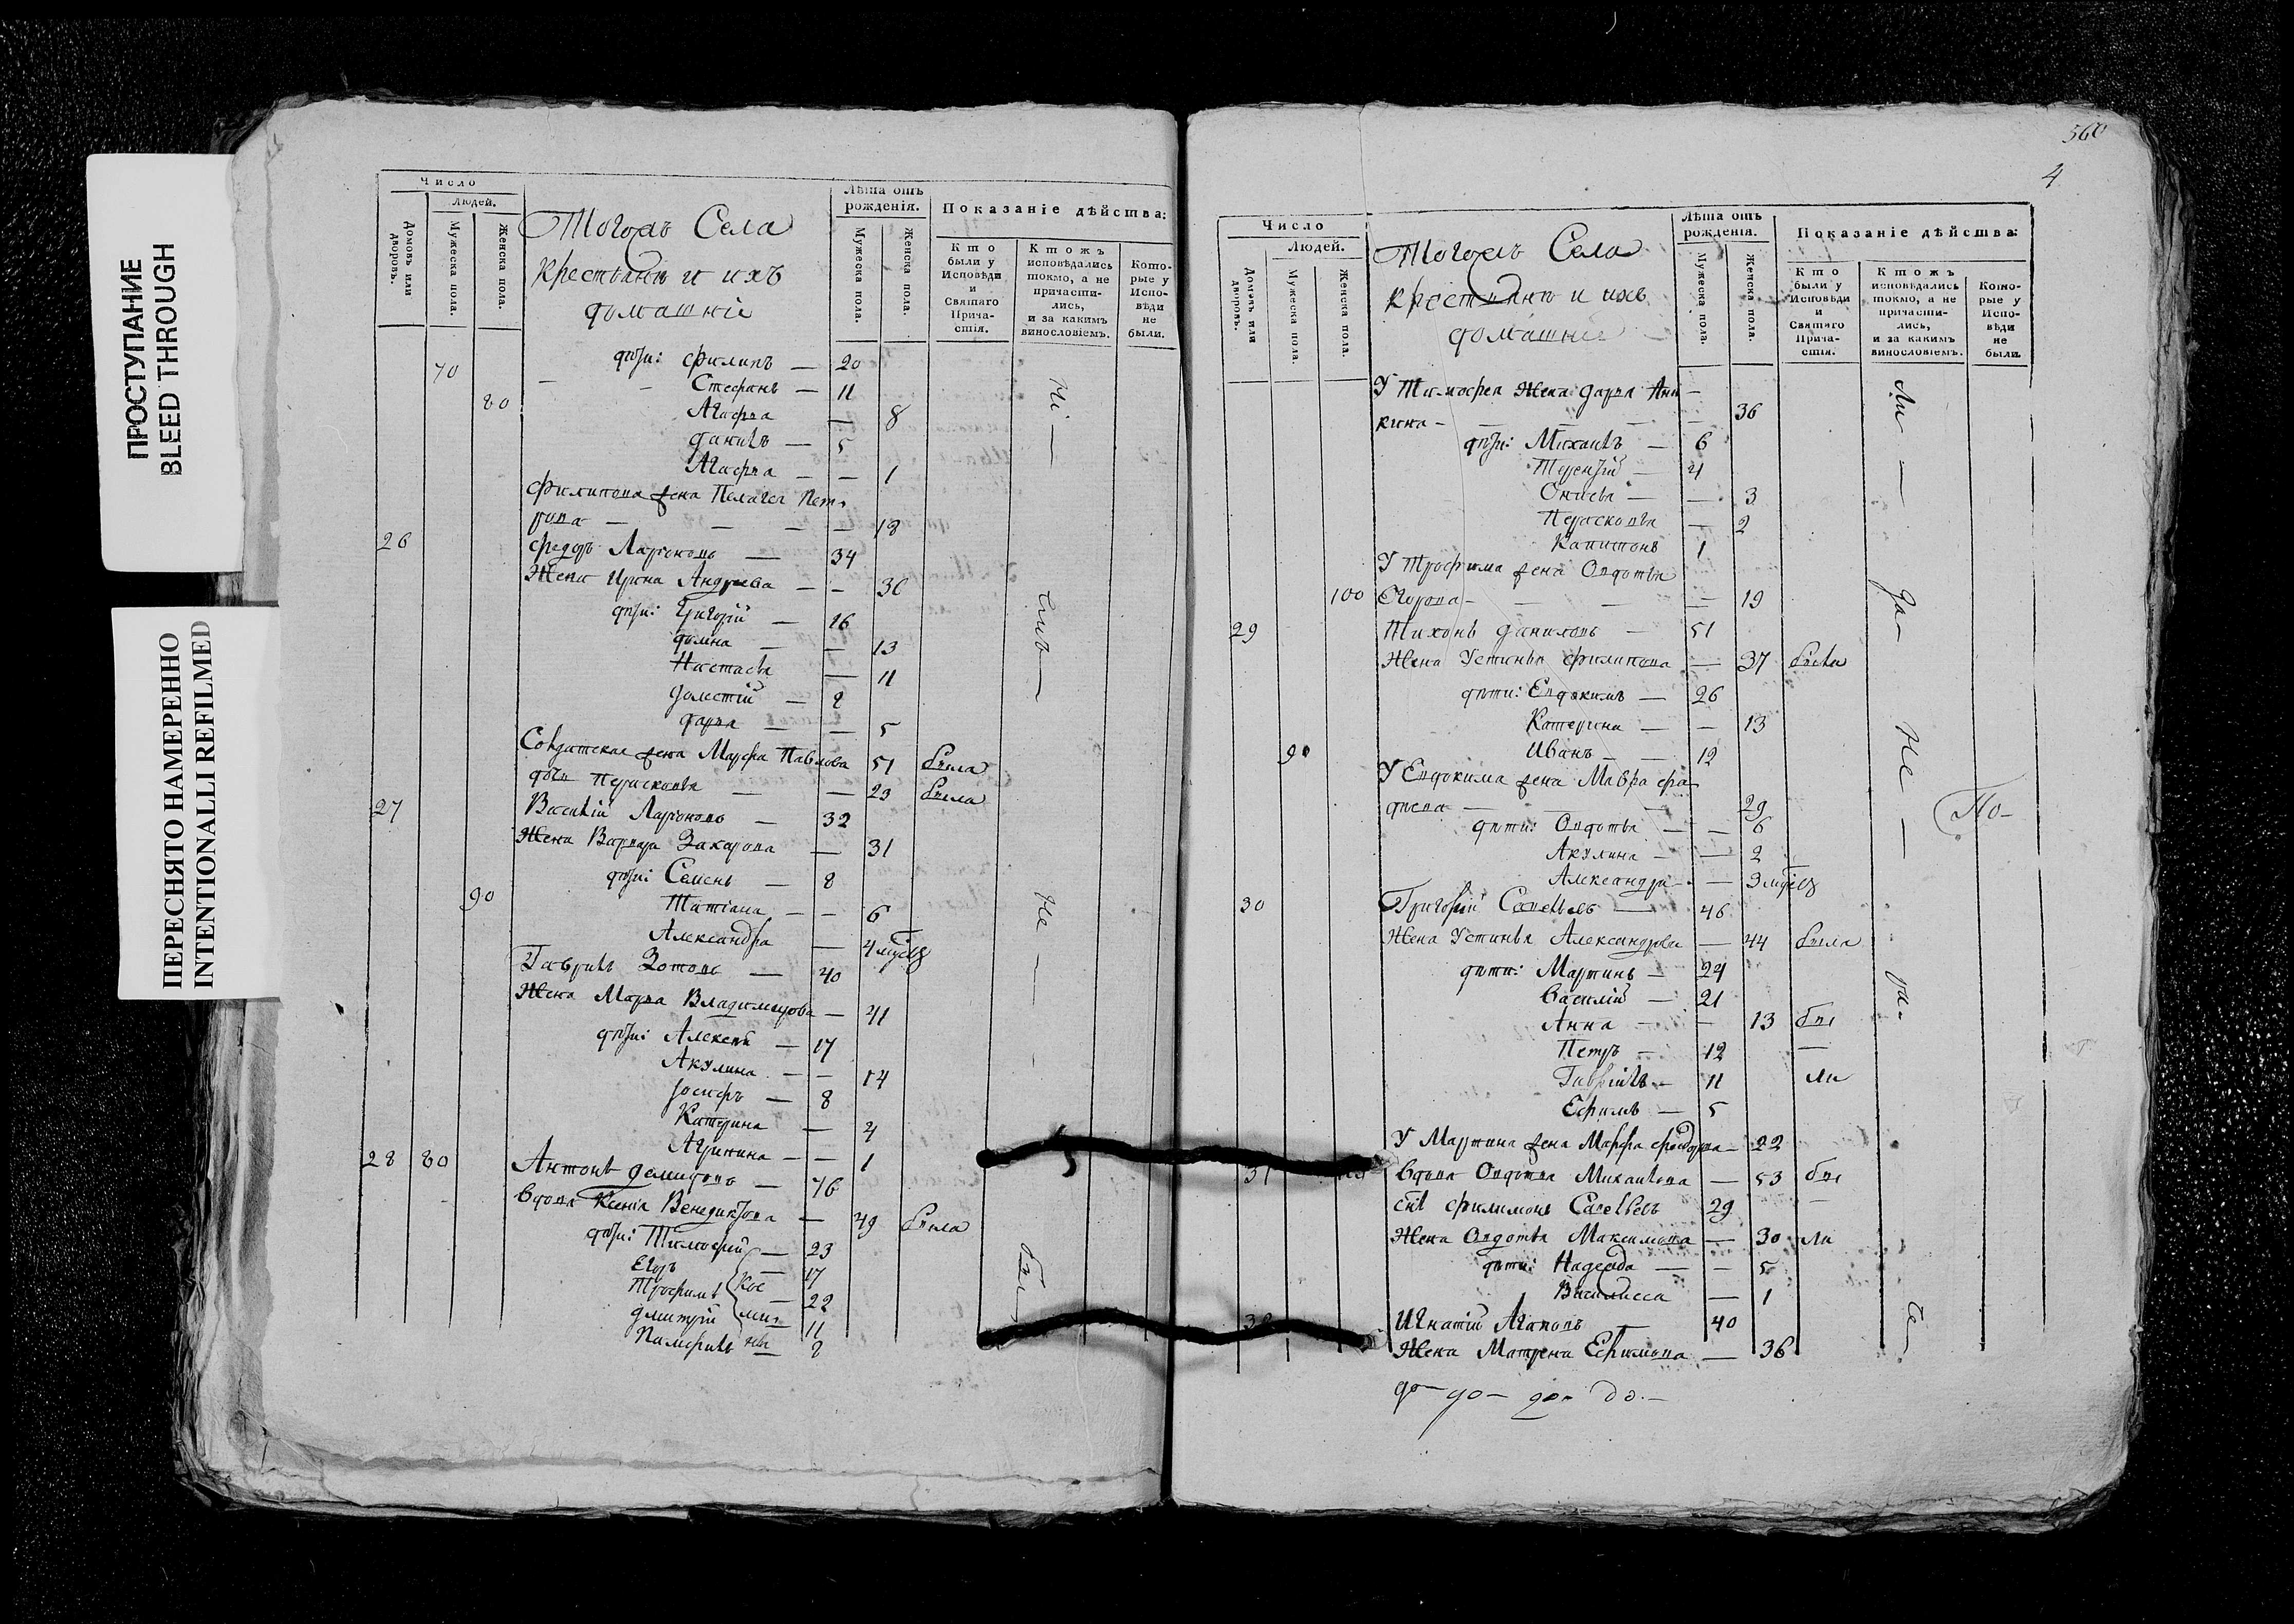 ПРОСТУПАНИЕ
BLEED THROUGH
ПЕРЕСНЯТО НАМЕРЕННО
INTENTIONALLI REFILMED
Число
Людей.
Домовъ или дворовъ.
Мужеска пола.
Женска пола.
Тогожъ Села
крестьянъ и ихъ
домашніе
Лѣта отъ рожденія.
Мужеска пола.
Женска пола.
Показаніе дѣйства:
Кто были у Исповѣди и Святаго Прича-стія.
Ктожъ исповѣдались токмо, а не причасти-лись, и за какимъ винословіемъ.
Кото-рые у Испо-вѣди не были.
70 дѣти: Филипъ — 20
Стефанъ — 11
80 Агафья — 8
Данилъ — 5
Агафья — — 1
Филипова жена Пелагея Пет-
рова — — — 18
26 Федоръ Ларіоновъ — 34
Жена Ирина Андреева — — 36
дѣти: Григорій — 16
Домна — — 13
Настасья — 11
2
Дарья — — 5
Солдатская жена Марфа Павлова 51 была
дочь Парасковья — — 23 была
27 Василій Ларіоновъ — 32
Жена Варвара Захарова — 31
дѣти: Семенъ — 8
90 Татіана — — 6
Александра — 4 мѣсяц
Гаврилъ Зотовъ — 40
Жена Марья Владимерова — 41
дѣти: Алексей — 17
Акулина — — 14
Іосифъ — 8
Катерина — 4
Агрипина — — 1
28 80 Антонъ Демидовъ — 76
вдова Ксенія Венедиктова — 49 была
дѣти: Тимофей — 23
Егоръ — 17
Трофимъ — 22
Дмитрій — 11
Памфилъ 8
560
4
Число
Людей.
Домовъ или дворовъ.
Мужеска пола.
Женска пола.
Тогожъ Села
крестьянъ и ихъ
домашніе
Лѣта отъ рожденія.
Мужеска пола.
Женска пола.
Показаніе дѣйства:
Кто были у Исповѣди и Святаго Прича-стія.
Ктожъ исповѣдались токмо, а не причасти-лись, и за какимъ винословіемъ.
Кото-рые у Испо-вѣди не были.
У Тимофея Жена Дарья Ани-
кина — — — 36
дѣти: Михаилъ — 6
Терентій — 4
— 3
Парасковья — 2
Капитонъ 1
У Трофима жена Овдотья
100 Егорова — — — 19
29 Тихонъ Даниловъ — 51
Жена Устинья Филипова — 37 была
дѣти: Евдокимъ — 26
Катерина — — 13
90 Иванъ — — 12
У Евдокима жена Мавра Фа-
деева — — 29
дѣти: Овдотья — — 6
Акулина — — 2
Александра — — 3 мѣсяц
30 Григорій Савельевъ — 46
Жена Устинья Александрова — 44 была
дѣти: Мартинъ — 24
Василій — 21
Анна — — 13 бы
Петръ — 12 —
Гаврилъ — 11 ли
Ефимъ — 5
У Мартина жена Марфа Федорова — 22
31 вдова Овдотья Михайлова — 53 бы
сынъ Филимонъ Савельевъ 29 —
Жена Овдотья Максимова — 30 ли
дѣти: Надежда — — 5
Василисса — 1
Игнатій Агаповъ — 40
Жена Матрена Ефимова — 36
По-
до— до— до— до.—